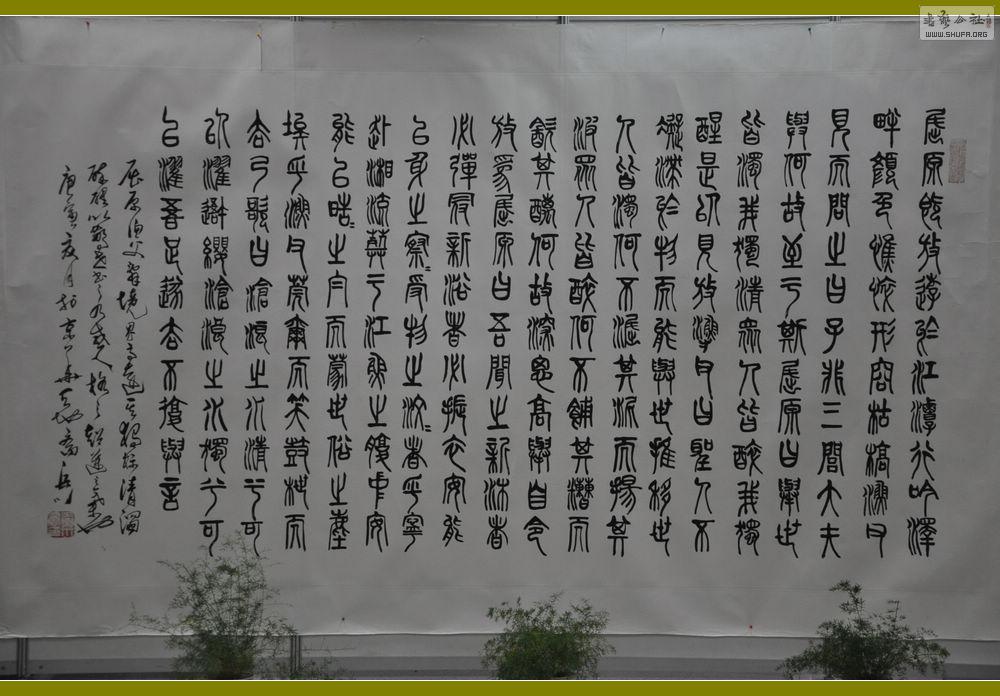 屈原既放遊於江潭行吟澤
畔顏色憔悴形容枯槁漁父
見而問之曰子非三閭大夫
與何故至于斯屈原曰舉世
皆濁我獨清眾人皆醉我獨
醒是以見放漁父曰聖人不
凝滯於物而能與世推移世
人皆濁何不淈其泥而揚其
波眾人皆醉何不餔其糟而
歠其醨何故深思高舉自令
放為屈原曰吾聞之新沐者
必彈冠新浴者必振衣安能
以身之察=受物之汶=者乎寧
赴湘流葬于江魚之腹中安
能以晧=之白而蒙世俗之塵
埃乎漁父莞爾而笑鼓枻而
去乃歌曰滄浪之水清兮可
以濯吾纓滄浪之水濁兮可
以濯吾足遂去不復與言
屈原漁父辭境界高遠其獨標清濁
醉醒以警世人格之超逸
庚寅夏月於京
書藝公社
WWW.SHUFA.ORG